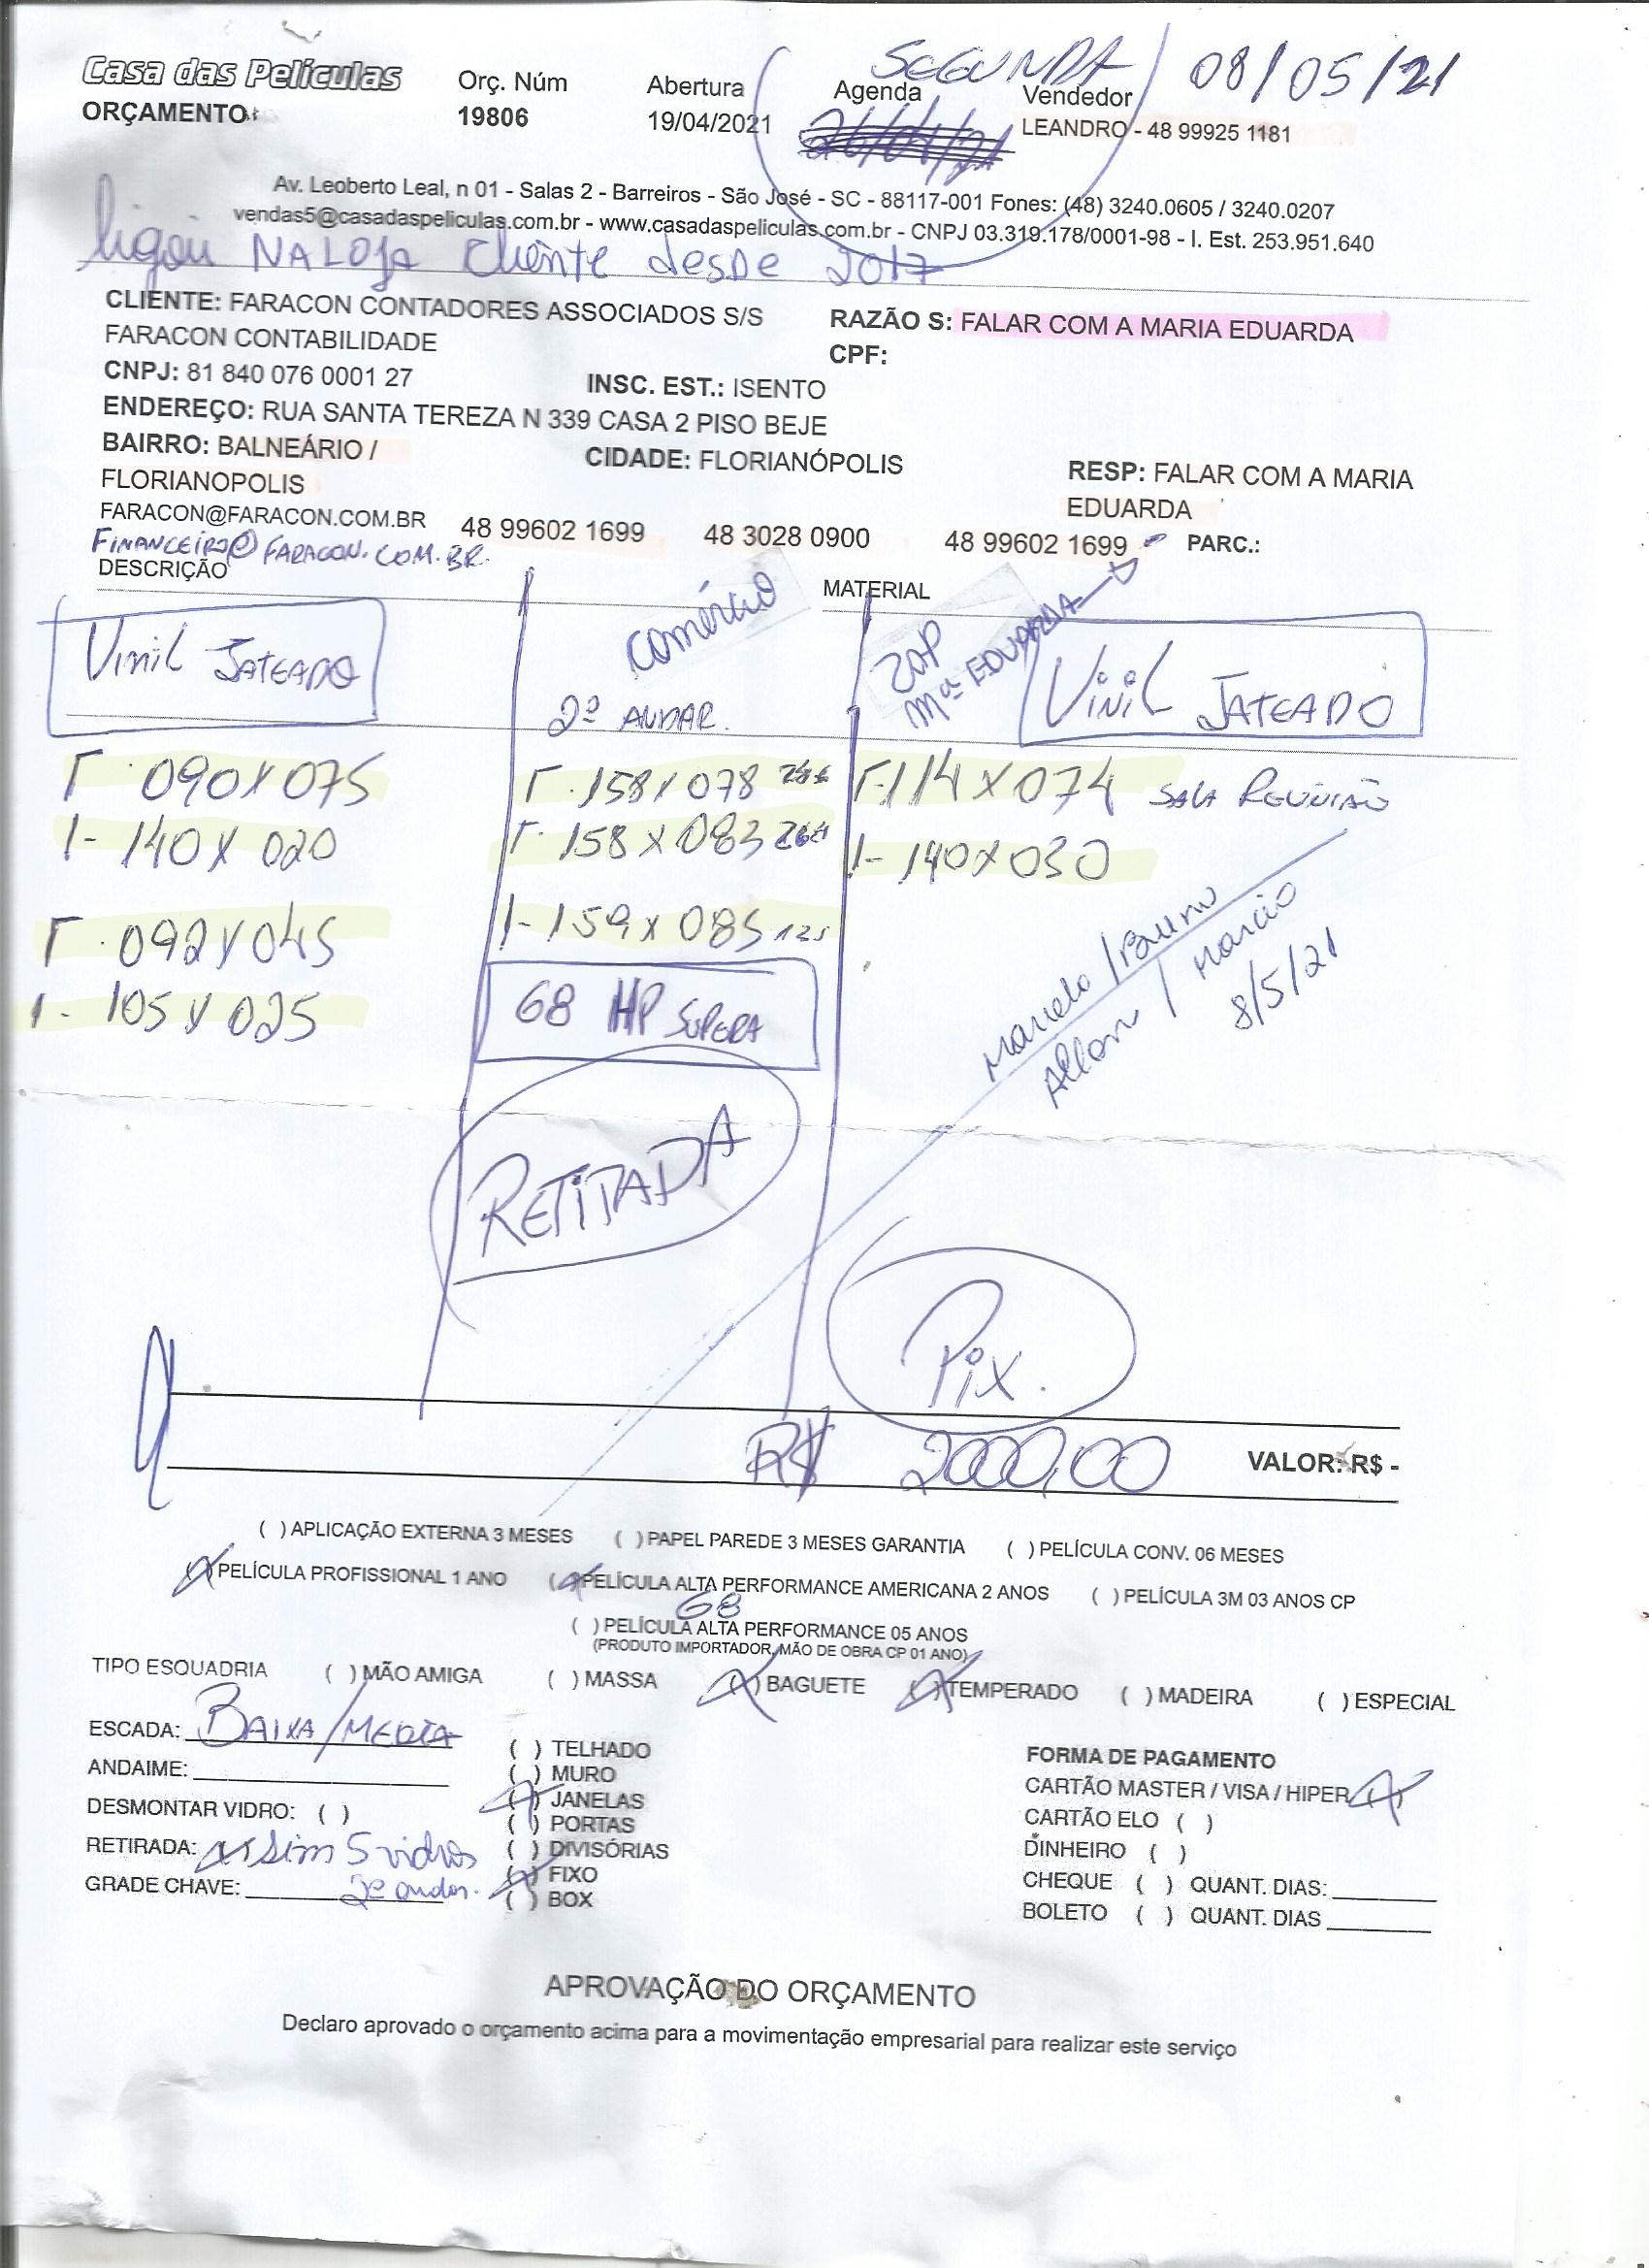 SEGUNDA 08/05/21
Casa das Películas
ORÇAMENTO
Orç. Núm
19806
Abertura
19/04/2021
Agenda
26/04/21
Vendedor
LEANDRO - 48 99925 1181
Av. Leoberto Leal, n 01 - Salas 2 - Barreiros - São José - SC - 88117-001 Fones: (48) 3240.0605 / 3240.0207
vendas5@casadaspeliculas.com.br - www.casadaspeliculas.com.br - CNPJ 03.319.178/0001-98 - I. Est. 253.951.640
ligou NA LOJA Cliente desde 2017
CLIENTE: FARACON CONTADORES ASSOCIADOS S/S
FARACON CONTABILIDADE
RAZÃO S: FALAR COM A MARIA EDUARDA
CPF:
CNPJ: 81 840 076 0001 27
INSC. EST.: ISENTO
ENDEREÇO: RUA SANTA TEREZA N 339 CASA 2 PISO BEJE
BAIRRO: BALNEÁRIO /
FLORIANOPOLIS
CIDADE: FLORIANÓPOLIS
RESP: FALAR COM A MARIA
EDUARDA
FARACON@FARACON.COM.BR
48 99602 1699
48 3028 0900
48 99602 1699
PARC.:
FINANCEIRO@FARACON.COM.BR.
DESCRIÇÃO
MATERIAL
Vinil JATEADO
1- 090X075
1- 140X020
1- 092X045
1- 105X025
comércio
2º ANDAR.
1- 158X078
1- 158X083
1- 159X085 125
68 HP SUPERA
RETIRADA
ZAP
Mª EDUARDA
Vinil JATEADO
1-114X074 SALA REUNIÃO
1- 140X030
Marcelo / Bruno
Allan / Marcio
8/5/21
Pix.
R$ 2000,00
VALOR: R$ -
( ) APLICAÇÃO EXTERNA 3 MESES
( ) PAPEL PAREDE 3 MESES GARANTIA
( ) PELÍCULA CONV. 06 MESES
(X) PELÍCULA PROFISSIONAL 1 ANO
(X) PELÍCULA ALTA PERFORMANCE AMERICANA 2 ANOS
( ) PELÍCULA 3M 03 ANOS CP
68
( ) PELÍCULA ALTA PERFORMANCE 05 ANOS
(PRODUTO IMPORTADOR, MÃO DE OBRA CP 01 ANO)
TIPO ESQUADRIA
( ) MÃO AMIGA
( ) MASSA
(X) BAGUETE
(X) TEMPERADO
( ) MADEIRA
( ) ESPECIAL
ESCADA: BAIXA/MEDIA
ANDAIME:
DESMONTAR VIDRO: ( )
RETIRADA: X Sim 5 vidros
GRADE CHAVE: 2º andar.
( ) TELHADO
( ) MURO
(X) JANELAS
( ) PORTAS
( ) DIVISÓRIAS
(X) FIXO
( ) BOX
FORMA DE PAGAMENTO
CARTÃO MASTER / VISA / HIPER (X)
CARTÃO ELO ( )
DINHEIRO ( )
CHEQUE ( ) QUANT. DIAS:
BOLETO ( ) QUANT. DIAS
APROVAÇÃO DO ORÇAMENTO
Declaro aprovado o orçamento acima para a movimentação empresarial para realizar este serviço